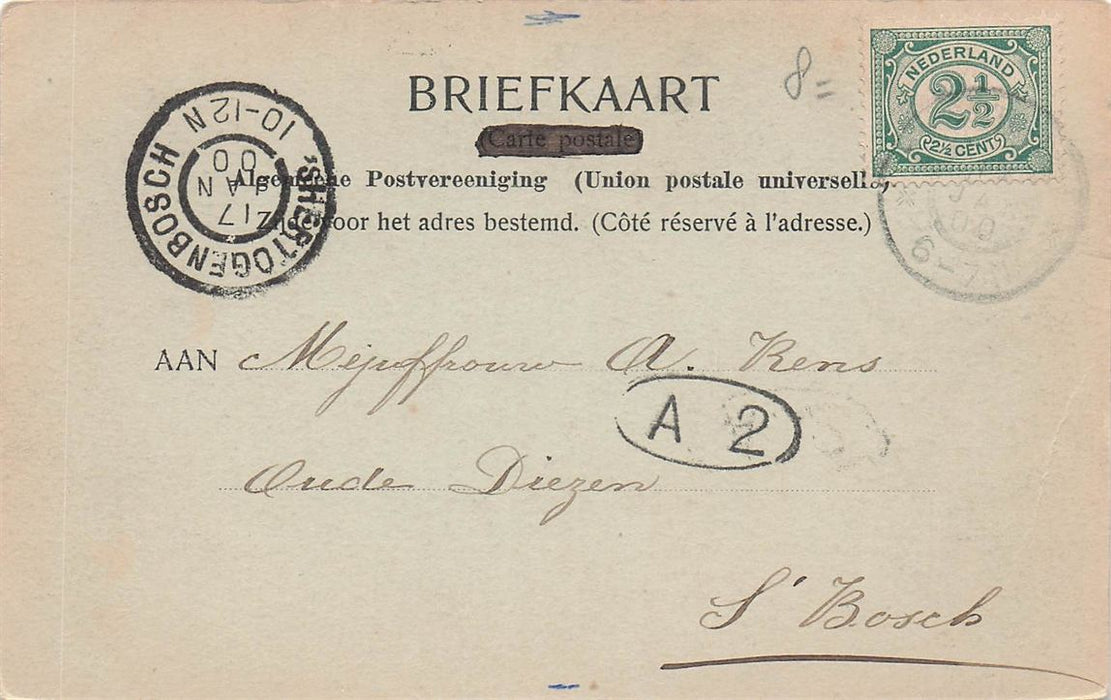 8=
BRIEFKAART
Carte postale
Algemeene Postvereeniging (Union postale universelle)
Zijde voor het adres bestemd. (Côté réservé à l'adresse.)
NEDERLAND
2½
2½ CENT
'SHERTOGENBOSCH
10-12N
17
JAN
00
00
6-7N
AAN Mejuffrouw A. Rens
A 2
Oude Diezen
S' Bosch